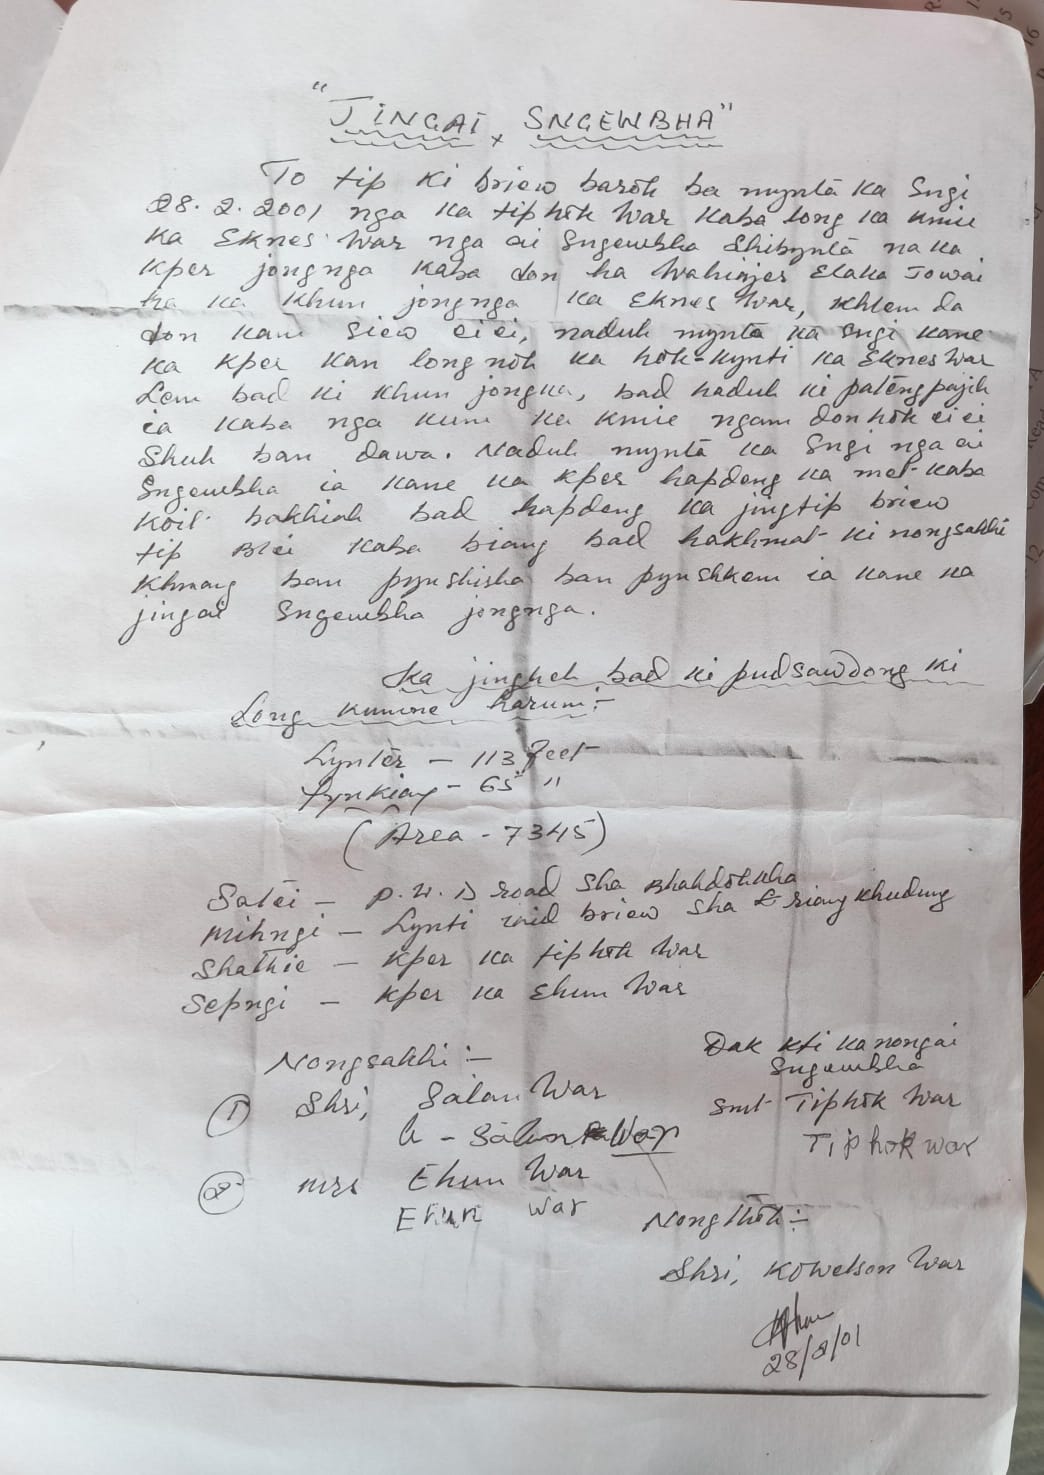 "JINGAI SNGEWBHA"
To tip ki briew baroh ba mynta ka Sngi
28.2.2001 nga ka tiphok War kaba long ka kmie
ka Eknes War nga ai Sngewbha Shibynta na ka
kper jongnga kaba don ha Wahiajer Elaka Jowai
ha ka khun jongnga ka Eknes War, khlem da
don kam siew ei ei, naduh mynta ka Sngi kane
ka kper kan long noh ka hok-kynti ka Eknes War
Lem bad ki khun jongka, bad haduh ki pateng pajih
ia kaba nga kum ka kmie ngam don hok ei ei
Shuh ban dawa. Naduh mynta ka Sngi nga ai
Sngewbha ia kane ka kper hapdeng ka met kaba
koit bakhiah bad hapdeng ka jingtip briew
tip Blei kaba biang bad hakhmat ki nongsakhi
khnang ban pynshisha ban pynshkem ia kane ka
jingai Sngewbha jongnga.
Ka jingheh bad ki pud sawdong ki
Long kumne harum:-
Lynter - 113 Feet
Pynkiang - 65 "
(Area - 7345)
Satei - P.W.D road sha
Mihngi - Lynti iaid briew sha Khudung
Shathie - kper ka tiphok War
Sepngi - kper ka Ehun War
Nongsakhi :-
Dak kti ka nongai
Sngewbha
(1) Shri, Salan War
Smt Tiphok War
Salan War
Tiphok war
(2) Mrs Ehun War
Ehun War
Nongthoh :-
Shri, Kowelson War
28/2/01